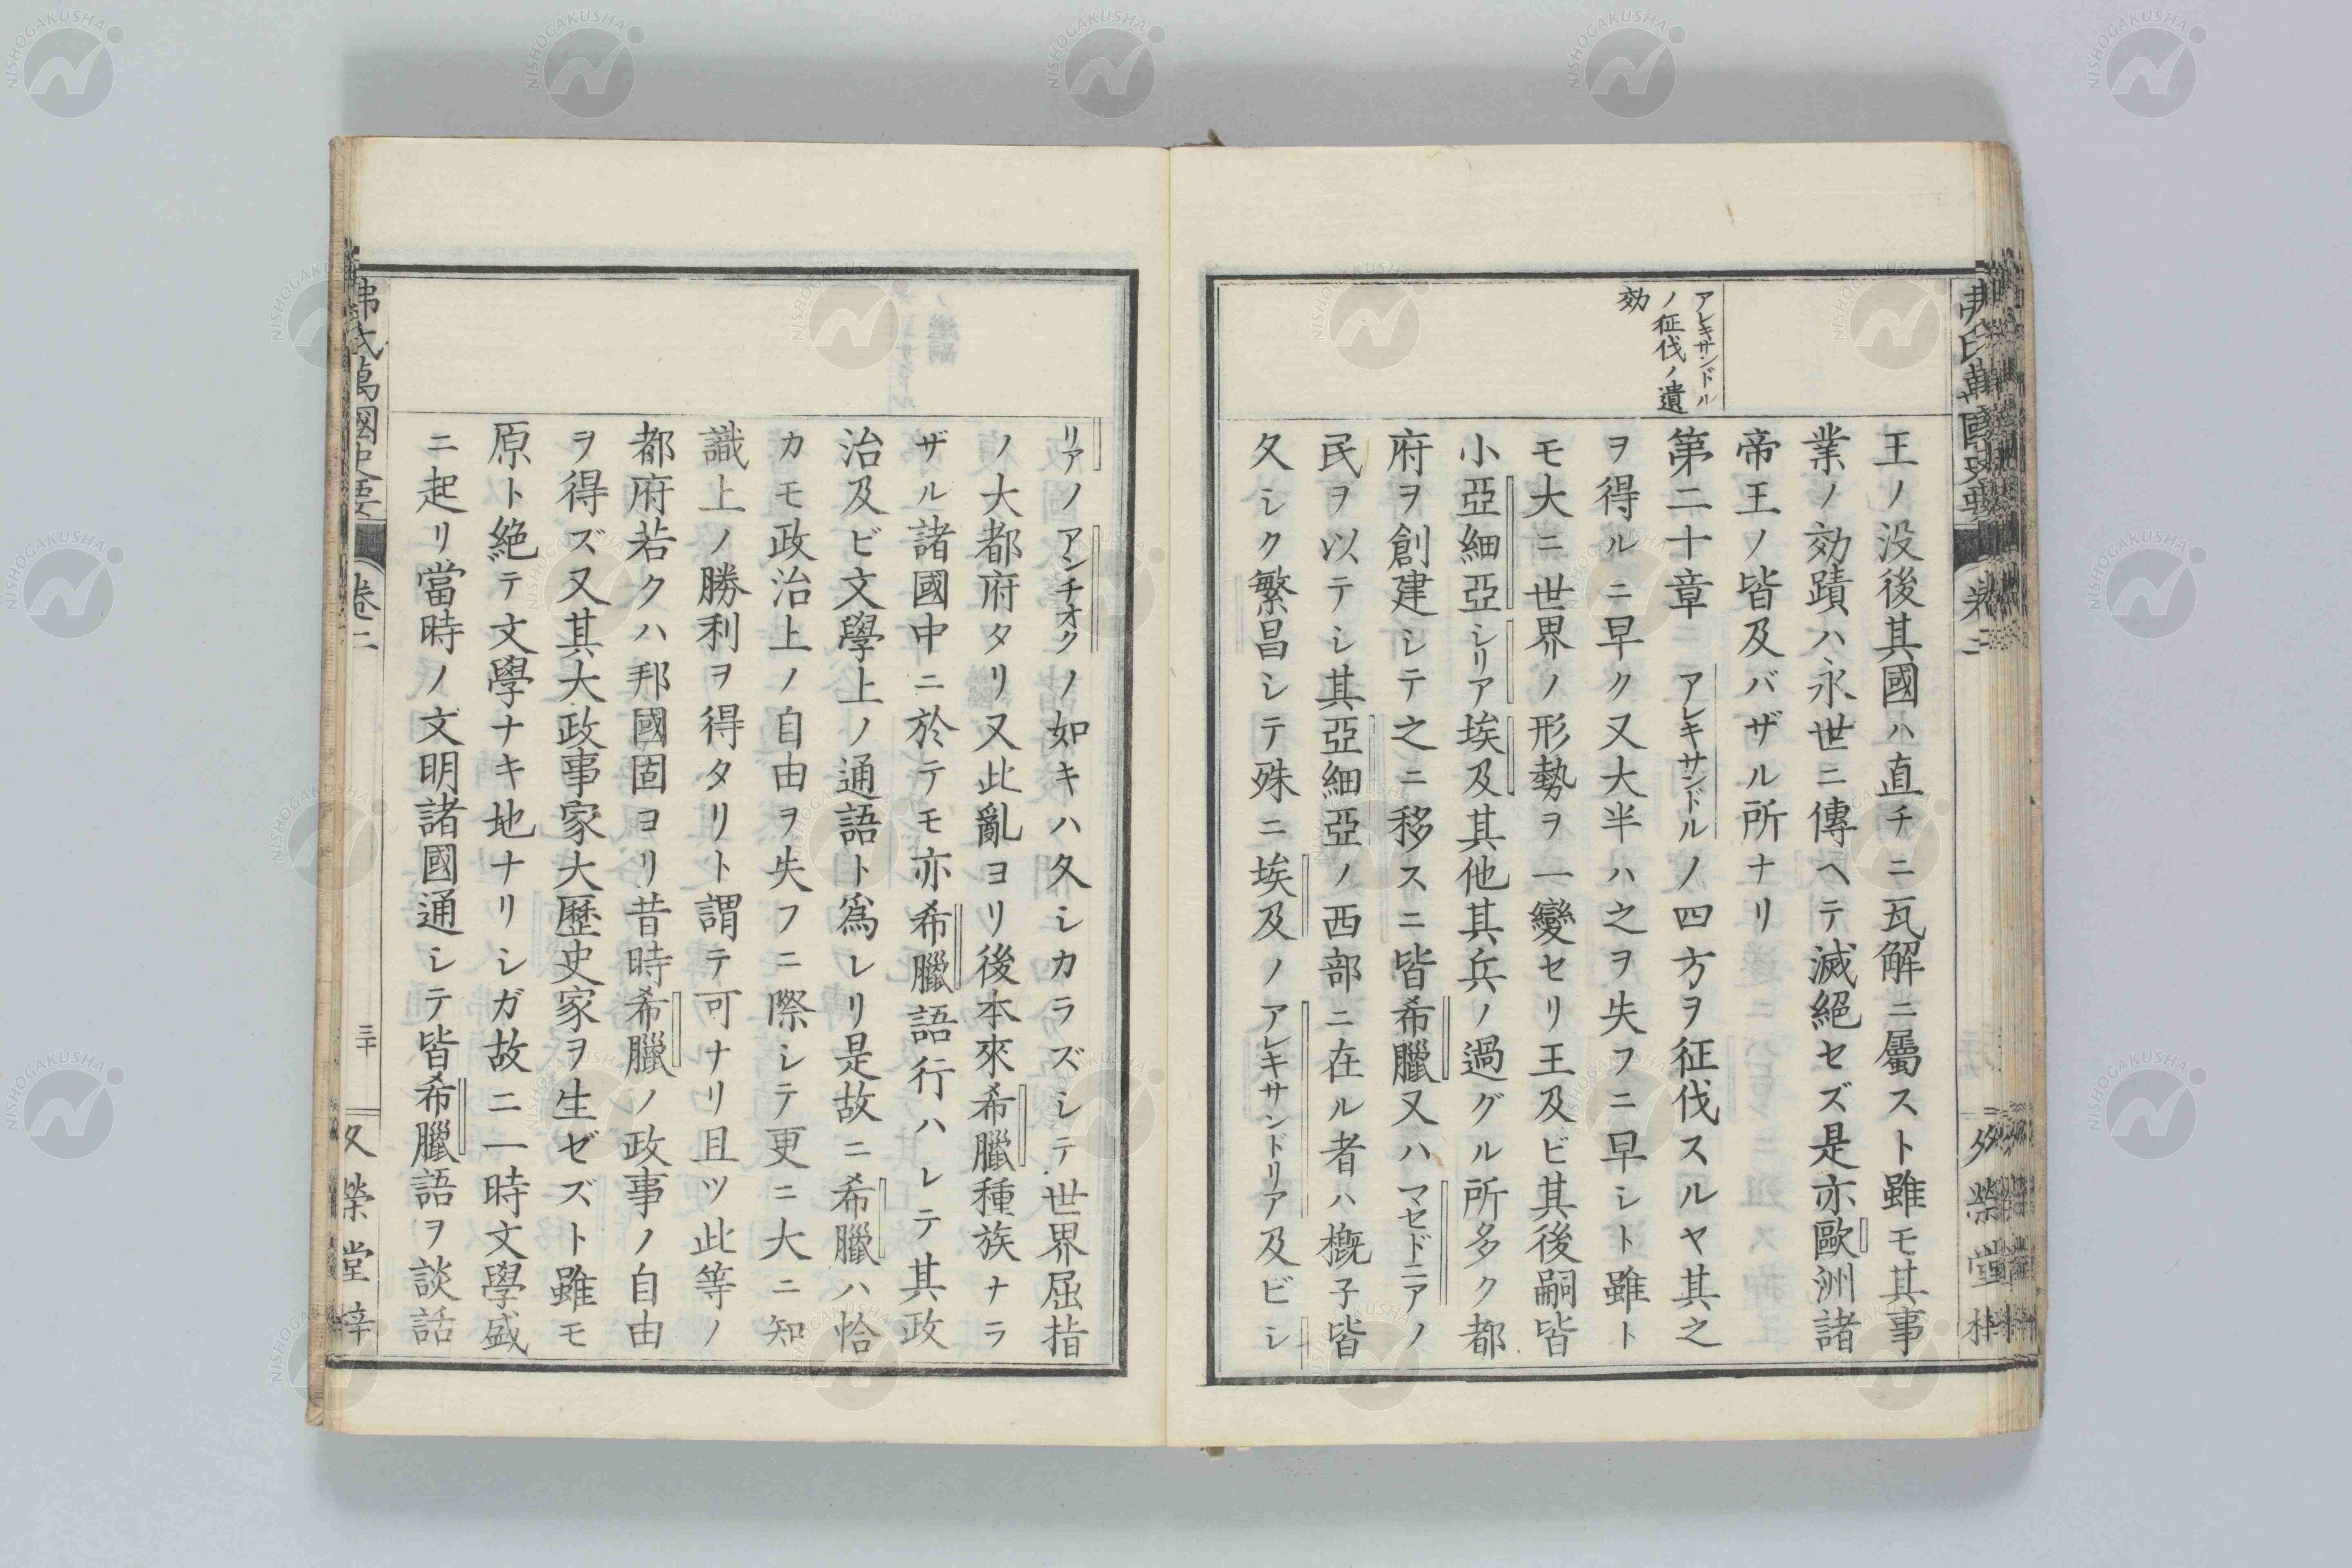 アレキサンドル
ノ征伐ノ遺
効
王ノ没後其國ハ直チニ瓦解ニ屬スト雖モ其事
業ノ効蹟ハ永世ニ傳ヘテ滅絕セズ是亦歐洲諸
帝王ノ皆及バザル所ナリ
第二十章 アレキサンドルノ四方ヲ征伐スルヤ其之
ヲ得ルニ早ク又大半ハ之ヲ失フニ早シト雖ト
モ大ニ世界ノ形勢ヲ一變セリ王及ビ其後嗣皆
小亞細亞シリア埃及其他其兵ノ過グル所多ク都
府ヲ創建シテ之ニ移スニ皆希臘又ハマセドニアノ
民ヲ以テシ其亞細亞ノ西部ニ在ル者ハ槪子皆
久シク繁昌シテ殊ニ埃及ノアレキサンドリア及ビシ
リアノアンチオクノ如キハ久シカラズシテ世界屈指
ノ大都府タリ又此亂ヨリ後本來希臘種族ナラ
ザル諸國中ニ於テモ亦希臘語行ハレテ其政
治及ビ文學上ノ通語ト爲レリ是故ニ希臘ハ恰
カモ政治上ノ自由ヲ失フニ際シテ更ニ大ニ知
識上ノ勝利ヲ得タリト謂テ可ナリ且ツ此等ノ
都府若クハ邦國固ヨリ昔時希臘ノ政事ノ自由
ヲ得ズ又其大政事家大歷史家ヲ生ゼズト雖モ
原ト絕テ文學ナキ地ナリシガ故ニ一時文學盛
ニ起リ當時ノ文明諸國通シテ皆希臘語ヲ談話
弗氏萬國史要
卷二
三十
文榮堂梓
NISHOGAKUSHA